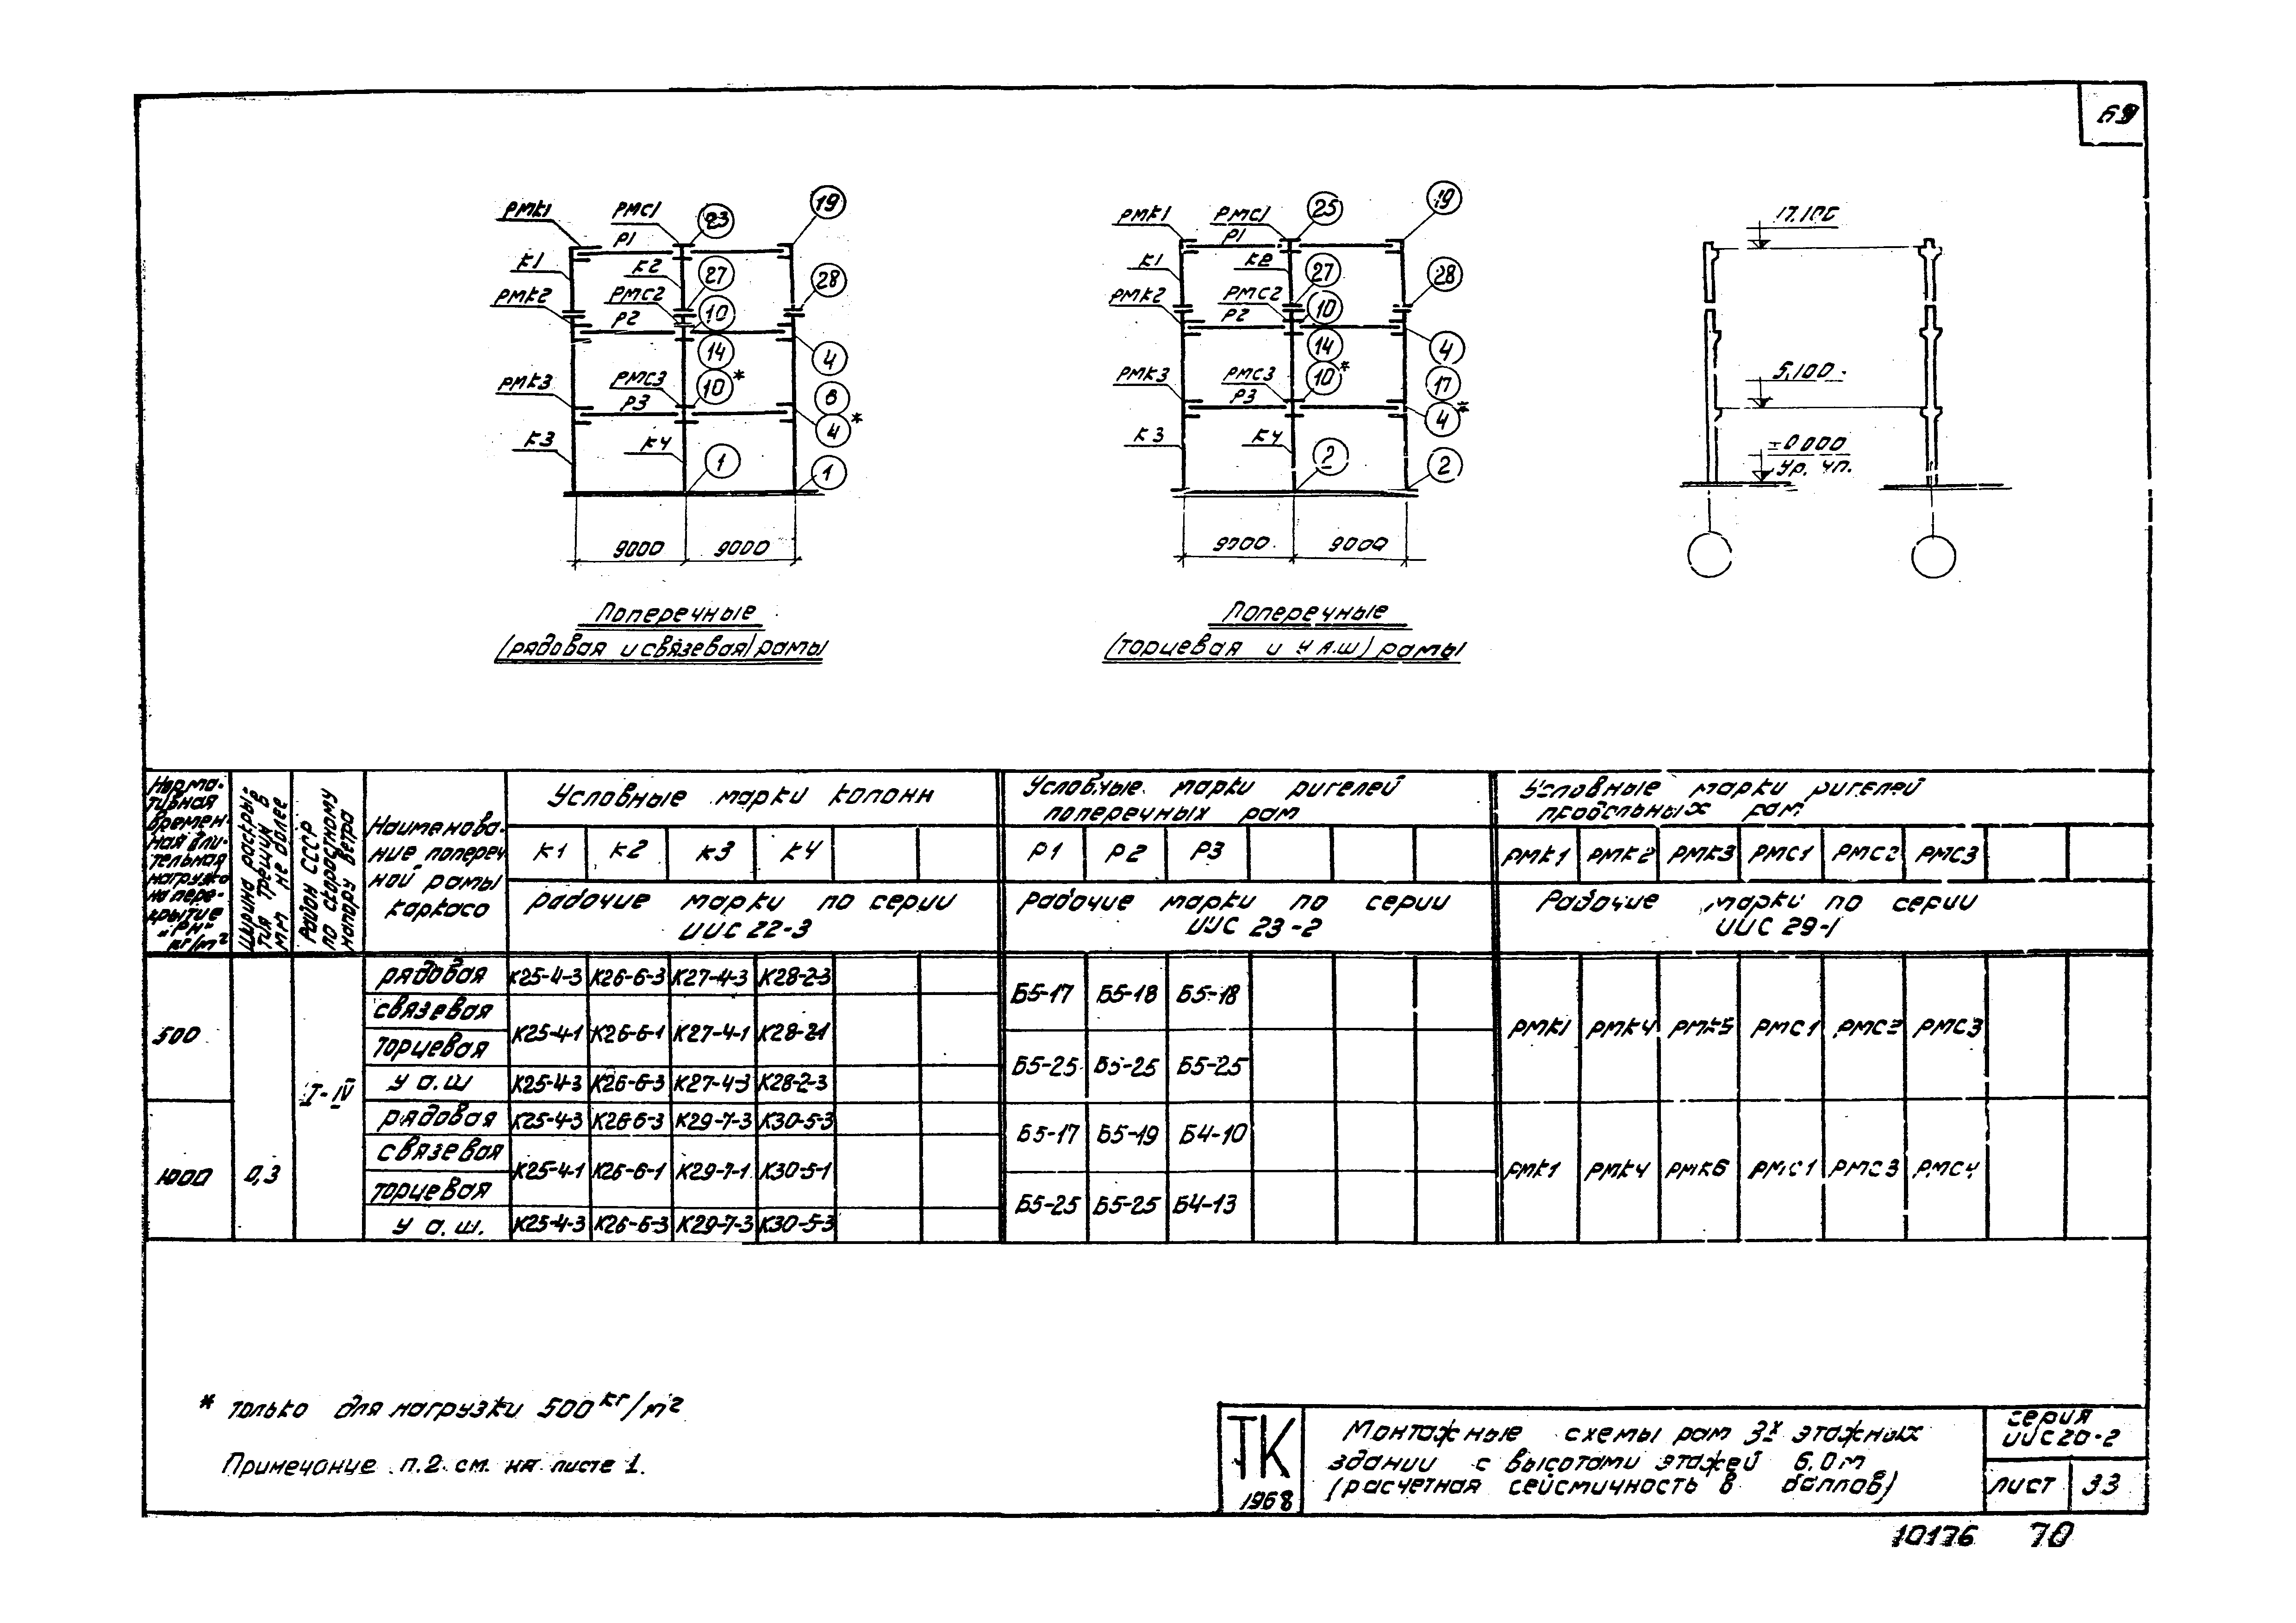 69
РМК1 РМС1 23 19
Р1
К1 К2 27 28
РМК2 РМС2 10
Р2
14 4
РМК3 РМС3 10*
Р3 8
4*
К3 К4 1 1
9000 9000
Поперечные
(рядовая и связевая) рамы
РМК1 РМС1 25 19
Р1
К1 К2 27 28
РМК2 РМС2 10
Р2
14 4
РМК3 РМС3 10* 17
Р3 4*
К3 К4 2 2
9000 9000
Поперечные
(торцевая и у а.ш) рамы
17.100
5,100
±0 000
Ур. чп.
Норма-
тивная
времен-
ная дли-
тельная
нагрузка
на пере-
крытие
"Рн"
кг/м²
Ширина раскры-
тия трещин в
мм не более
Район СССР
по скоростному
напору ветра
Наименова-
ние попереч
ной рамы
каркаса
Условные марки колонн
К1 К2 К3 К4
Рабочие марки по серии
ИИС 22-3
Условные марки ригелей
поперечных рам
Р1 Р2 Р3
Рабочие марки по серии
ИИС 23-2
Условные марки ригелей
продольных рам
РМК1 РМК2 РМК3 РМС1 РМС2 РМС3
Рабочие марки по серии
ИИС 29-1
500
0,3
I-IV
рядовая К25-4-3 К26-6-3 К27-4-3 К28-2-3
связевая
К25-4-1 К26-6-1 К27-4-1 К28-2-1
торцевая
у а.ш К25-4-3 К26-6-3 К27-4-3 К28-2-3
Б5-17 Б5-18 Б5-18
Б5-25 Б5-25 Б5-25
РМК1 РМК4 РМК5 РМС1 РМС2 РМС3
1000
рядовая К25-4-3 К26-6-3 К29-7-3 К30-5-3
связевая
К25-4-1 К26-6-1 К29-7-1 К30-5-1
торцевая
у а.ш. К25-4-3 К26-6-3 К29-7-3 К30-5-3
Б5-17 Б5-19 Б4-10
Б5-25 Б5-25 Б4-13
РМК1 РМК4 РМК6 РМС1 РМС3 РМС4
* только для нагрузки 500 кг/м²
Примечание п.2 см. на листе 1.
ТК
1968
Монтажные схемы рам 3х этажных
зданий с высотами этажей 6.0м
(расчетная сейсмичность 8 баллов)
серия
ИИС20-2
лист 33
10176 70